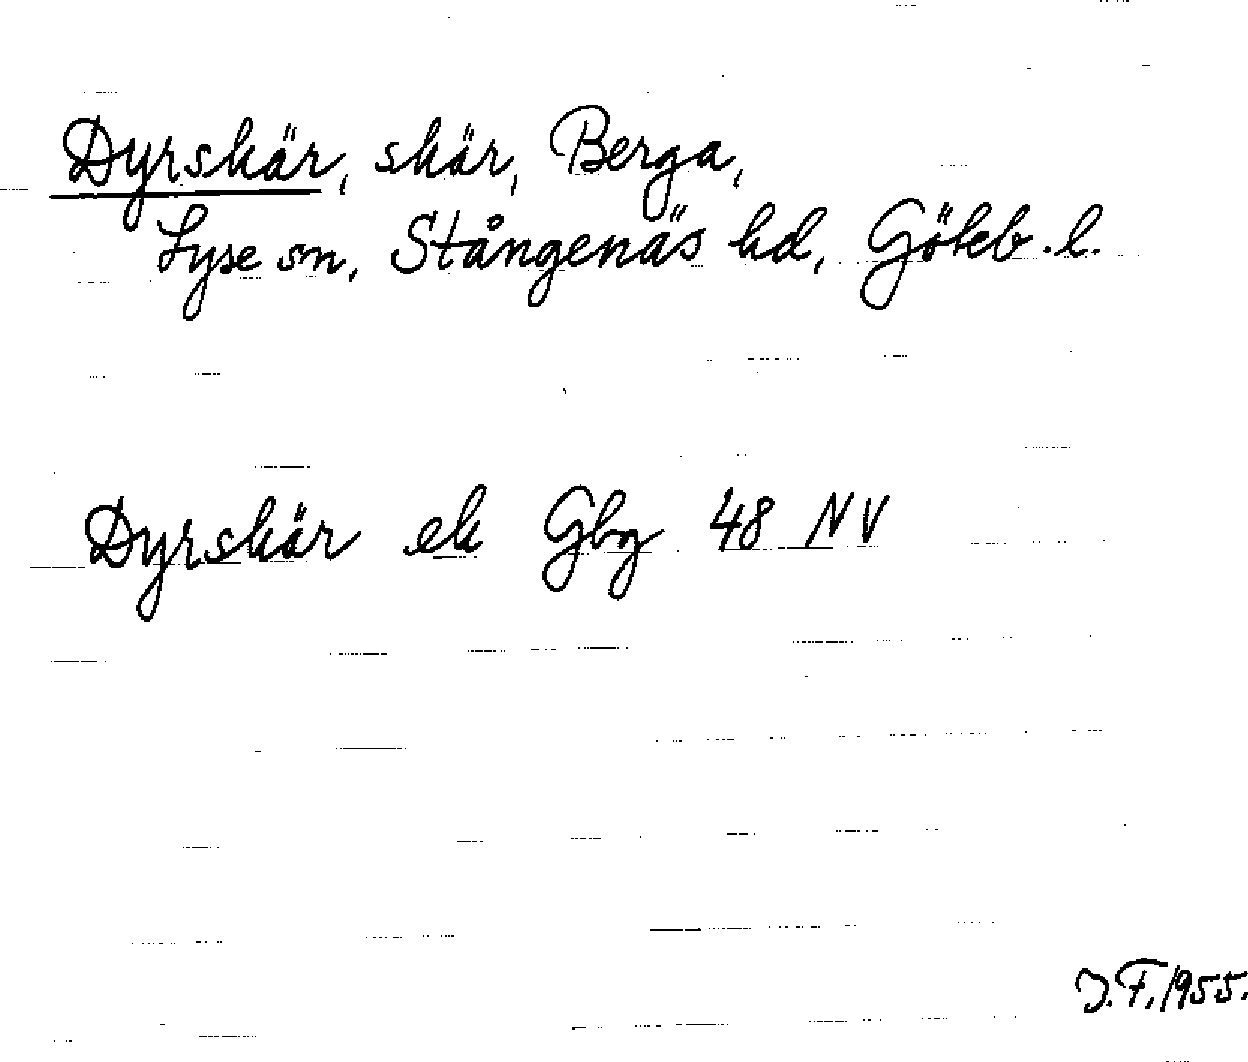 Dyrskär, skär, Berga,
Lyse sn, Stångenäs hd, Göteb. l.
Dyrskär ek Gbg 48 NV
J.F. 1955.